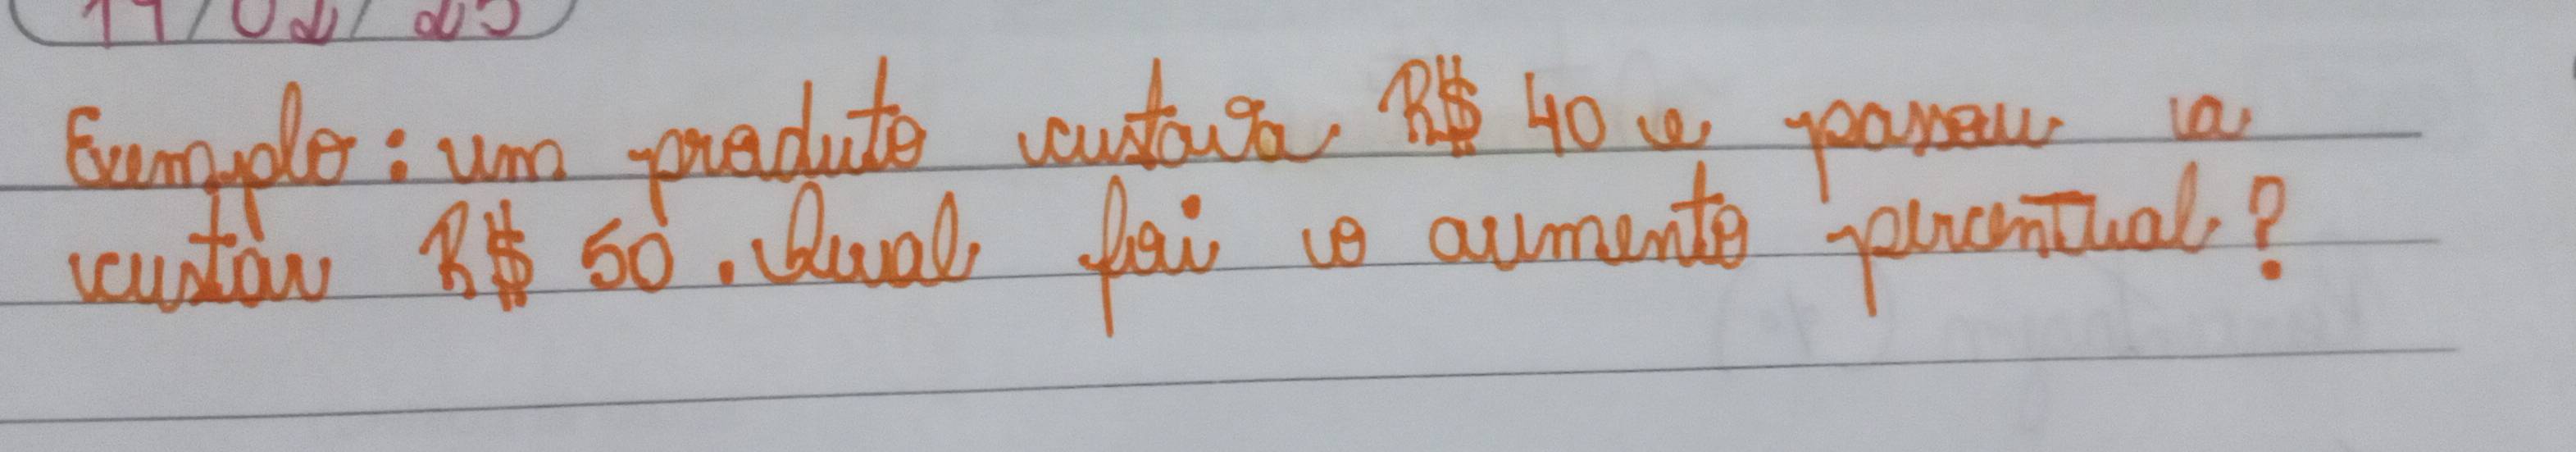 Exemplo: um produto custava R$ 40 e passou a
custar R$ 50. Qual foi o aumento percentual?